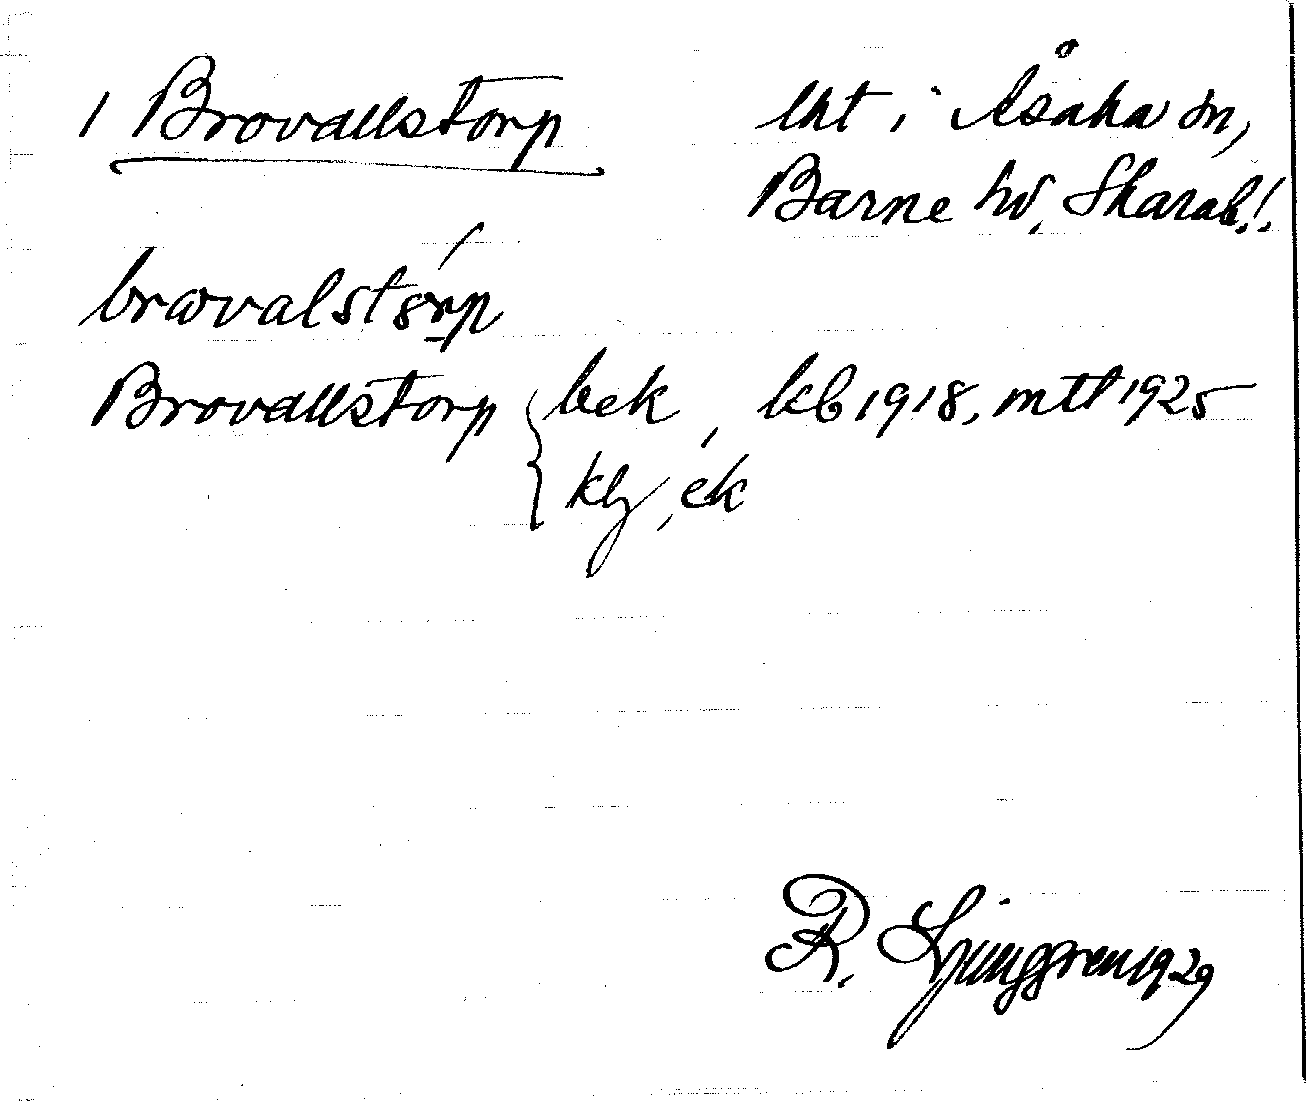 1 Brovallstorp
lht i Åsaka sn,
Barne hd, Skarab.l.
bravalstorp
Brovallstorp { bek, kb 1918, mtl 1925
klj, ek
R. Ljunggren 1929